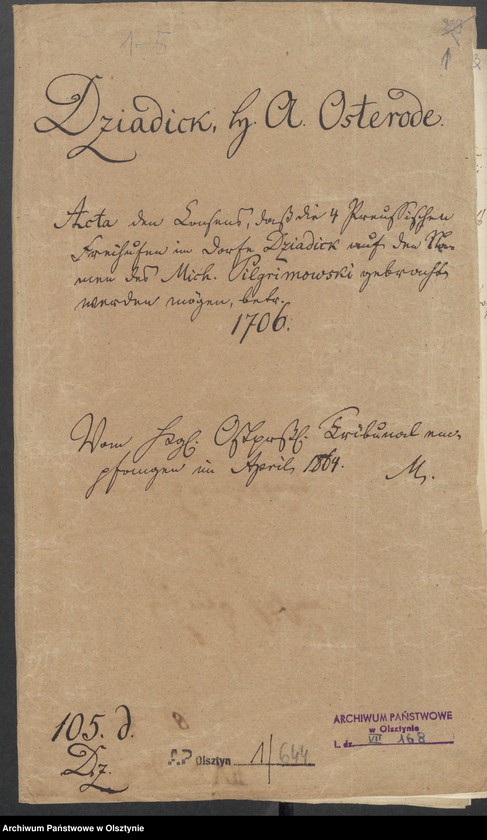 1-5
1
Dziadick, H. A. Osterode.
Acta den Consens, daß die 4 Preussischen
Freihufen im Dorfe Dziadick auf den Na-
men des Mich. Pilgrimowski gebracht
werden mögen, betr.
1706.
Vom Kgl. Ostprß. Tribunal em-
pfangen im April 1864. M.
105. d.
Dz.
8
AP Olsztyn 1/644
ARCHIWUM PAŃSTWOWE
w Olsztynie
L. dz. VII 168
Archiwum Państwowe w Olsztynie